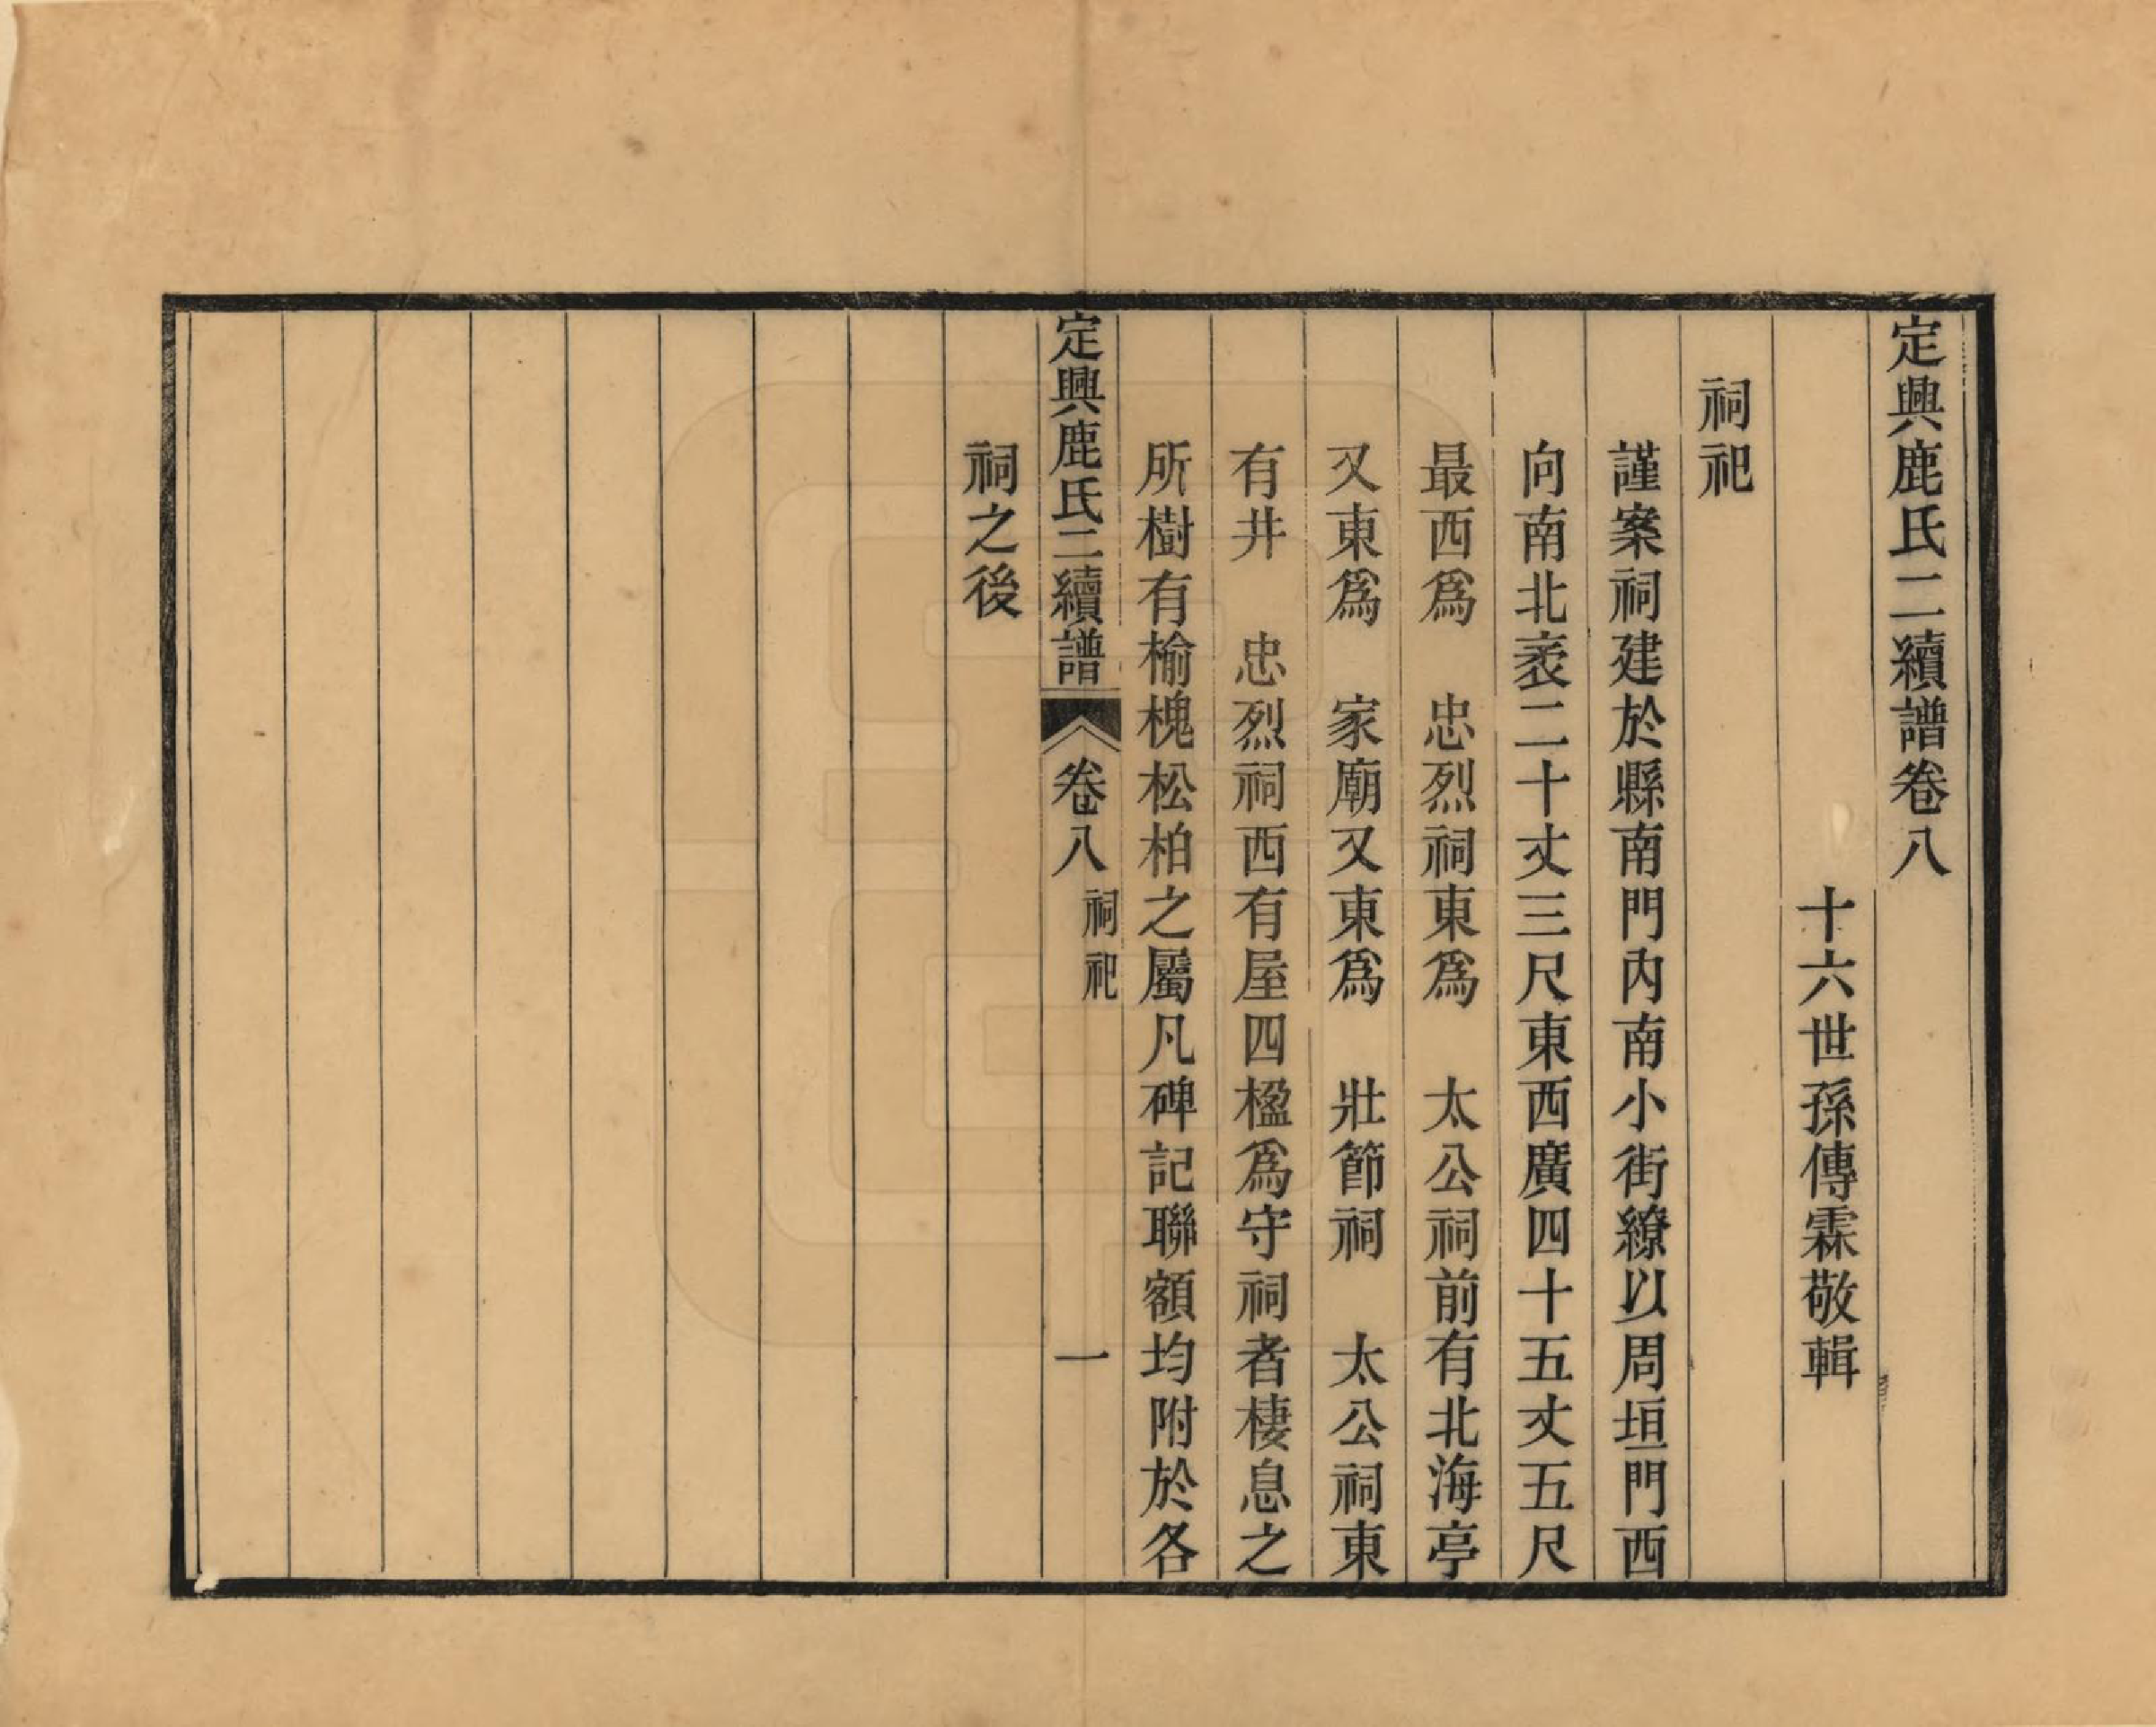 定興鹿氏二續譜卷八
十六世孫傳霖敬輯
祠祀
謹案祠建於縣南門內南小街繚以周垣門西
向南北袤二十丈三尺東西廣四十五丈五尺
最西爲　忠烈祠東爲　太公祠前有北海亭
又東爲　家廟又東爲　壯節祠　太公祠東
有井　忠烈祠西有屋四楹爲守祠者棲息之
所樹有榆槐松柏之屬凡碑記聯額均附於各
定興鹿氏二續譜　卷八　祠祀　一
祠之後